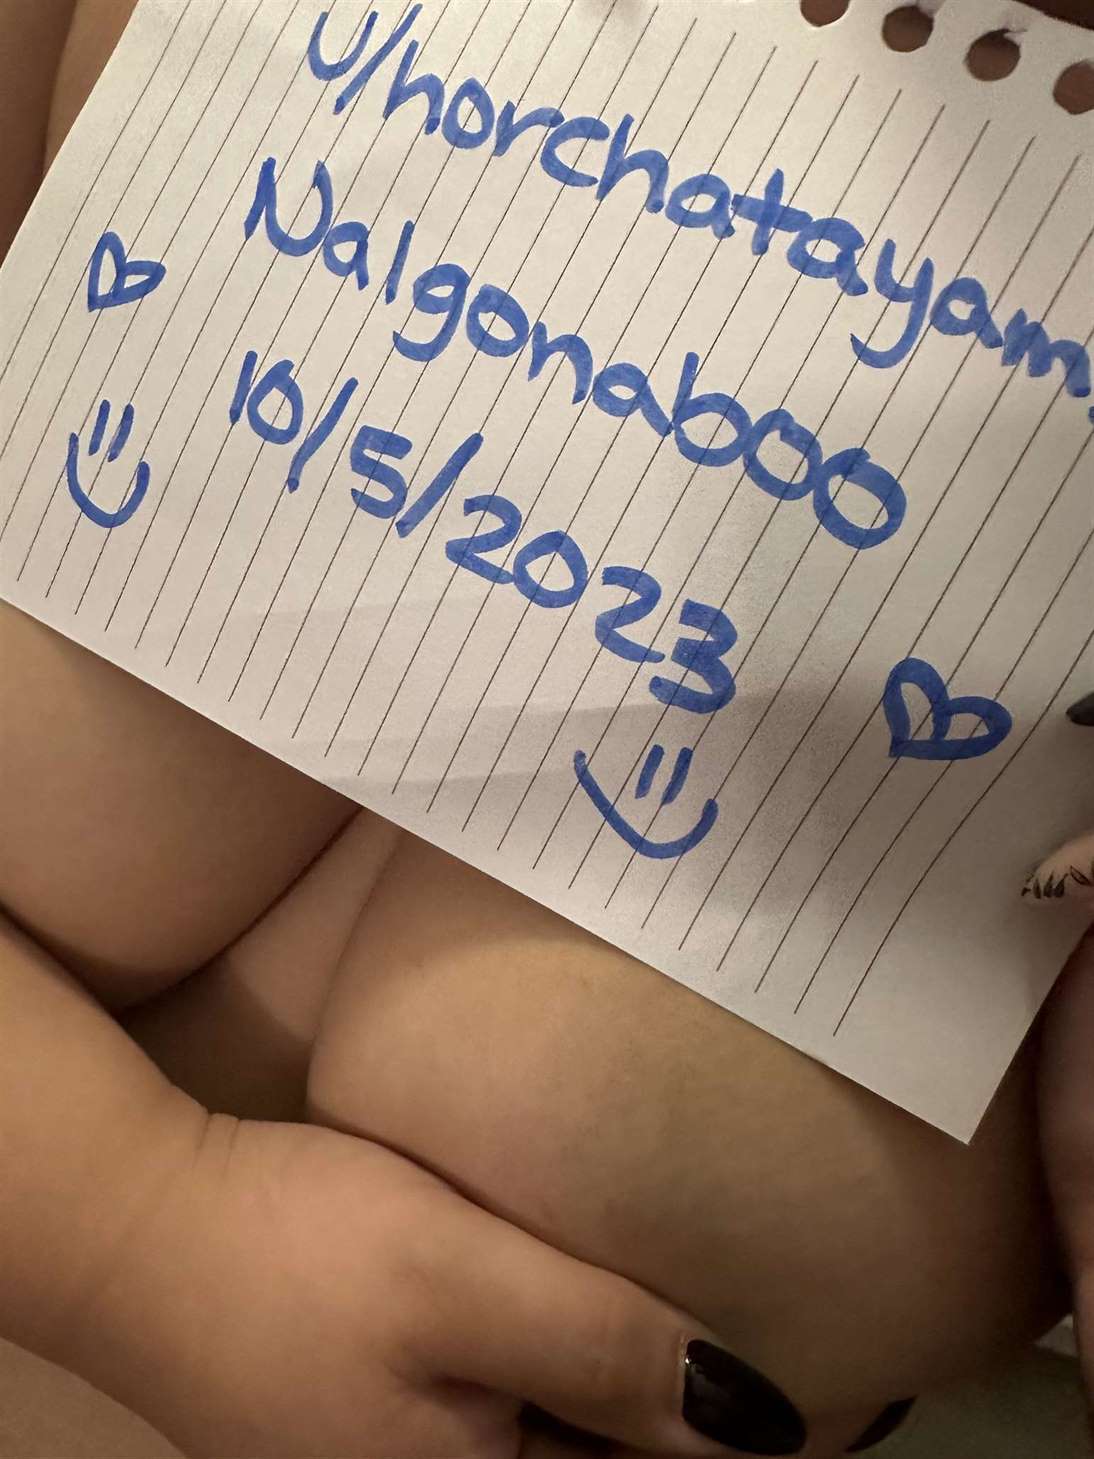 u/horchatayam
Nalgonaboo
10/5/2023